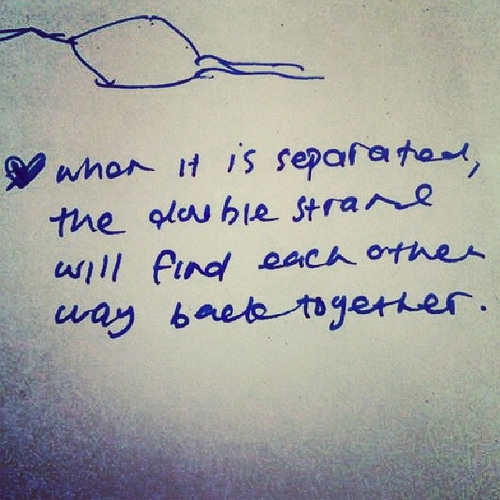 when it is separated,
the double strand
will find each other
way back together.